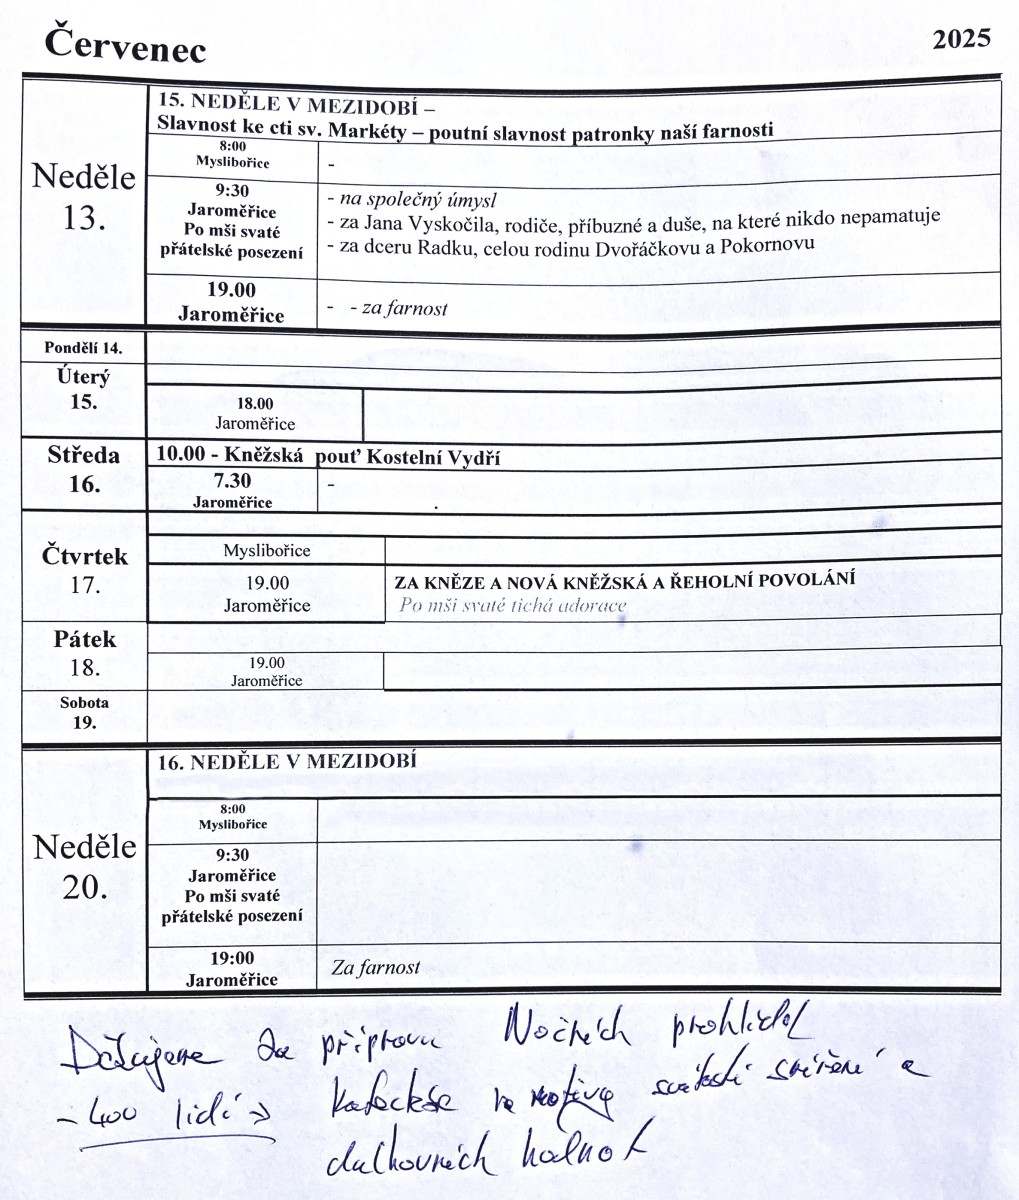 Červenec 2025
15. NEDĚLE V MEZIDOBÍ –
Slavnost ke cti sv. Markéty – poutní slavnost patronky naší farnosti
Neděle
13.
8:00
Myslibořice
-
9:30
Jaroměřice
Po mši svaté
přátelské posezení
- na společný úmysl
- za Jana Vyskočila, rodiče, příbuzné a duše, na které nikdo nepamatuje
- za dceru Radku, celou rodinu Dvořáčkovu a Pokornovu
19.00
Jaroměřice
- - za farnost
Pondělí 14.
Úterý
15.
18.00
Jaroměřice
Středa
16.
10.00 - Kněžská pouť Kostelní Vydří
7.30
Jaroměřice
-
Čtvrtek
17.
Myslibořice
19.00
Jaroměřice
ZA KNĚZE A NOVÁ KNĚŽSKÁ A ŘEHOLNÍ POVOLÁNÍ
Po mši svaté tichá adorace
Pátek
18.
19.00
Jaroměřice
Sobota
19.
16. NEDĚLE V MEZIDOBÍ
Neděle
20.
8:00
Myslibořice
9:30
Jaroměřice
Po mši svaté
přátelské posezení
19:00
Jaroměřice
Za farnost
Děkujeme za přípravu Nočních prohlídek
- 400 lidí → svátosti smíření a
duchovních hodnot